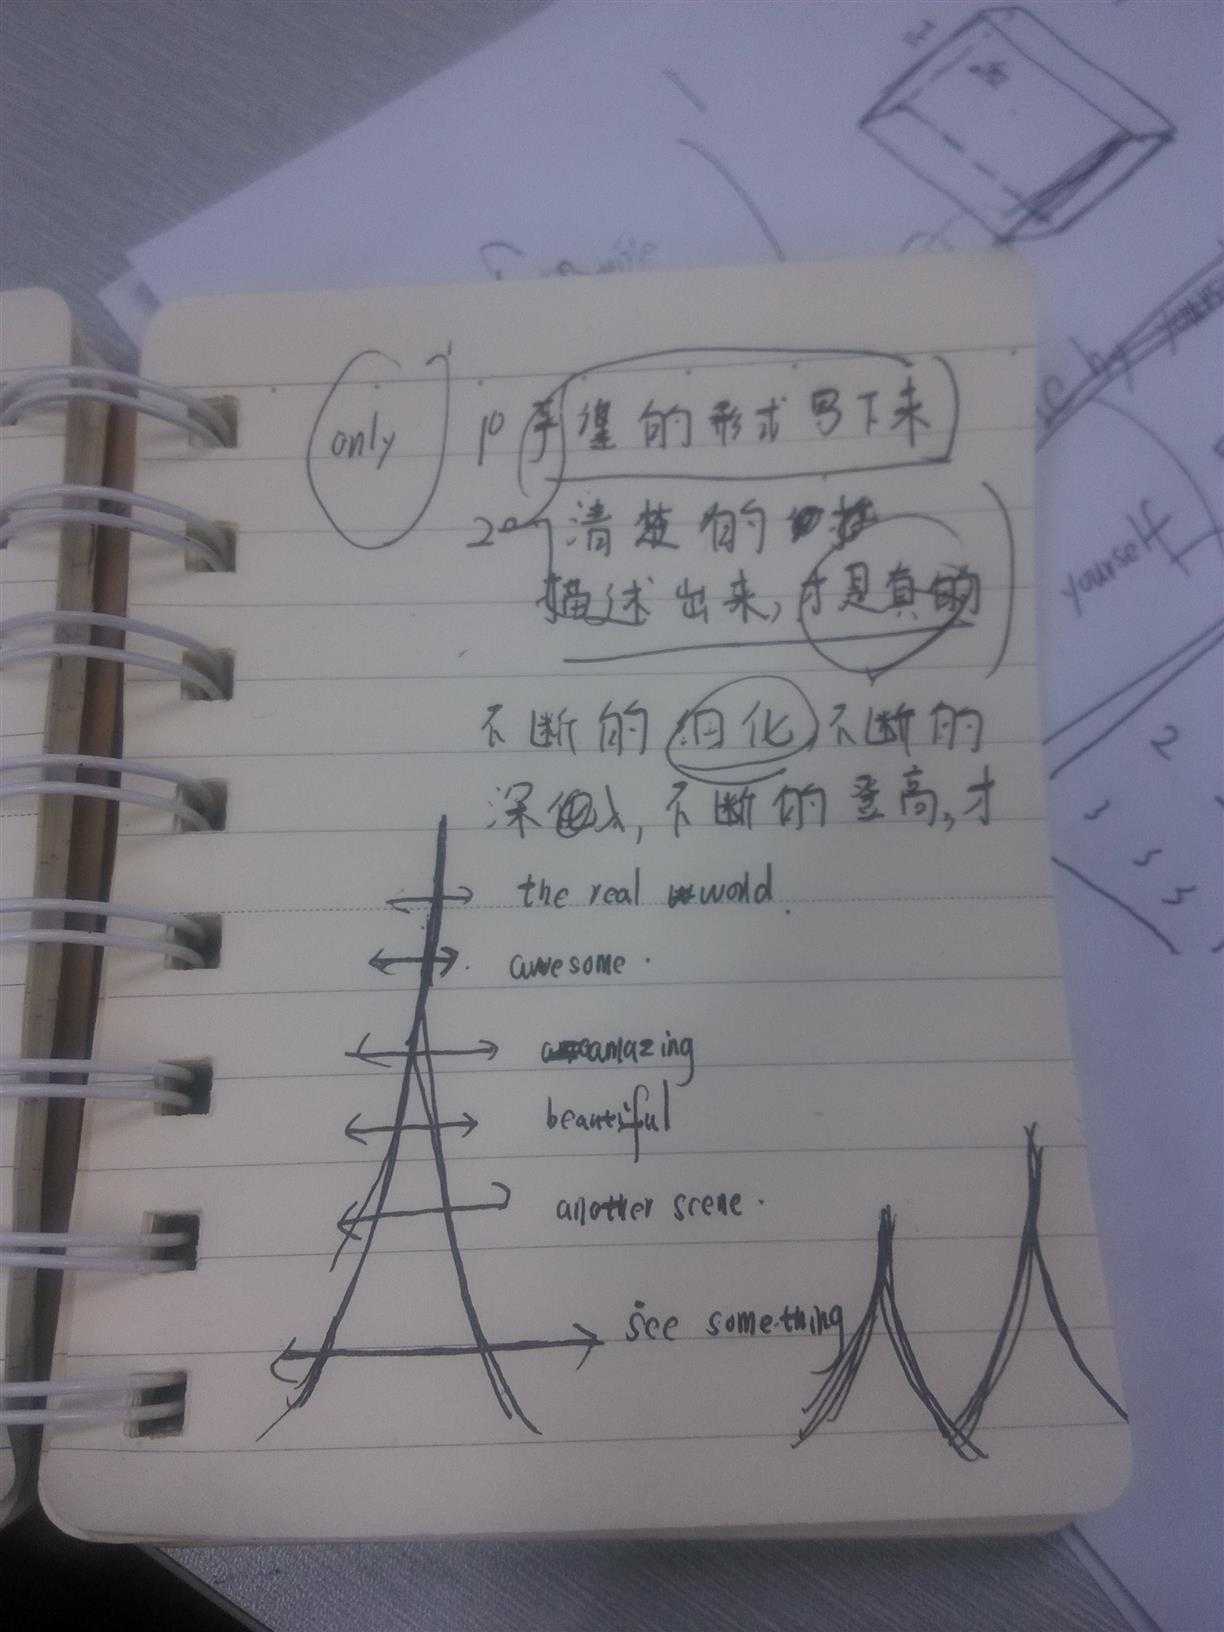 only
1° 的形式写下来
2° 清楚的
描述出来,才是真的
不断的细化,不断的
深入,不断的登高,才
the real world.
awesome.
amazing
beautiful
another scene.
see something
by
yourself
2
3
5
5